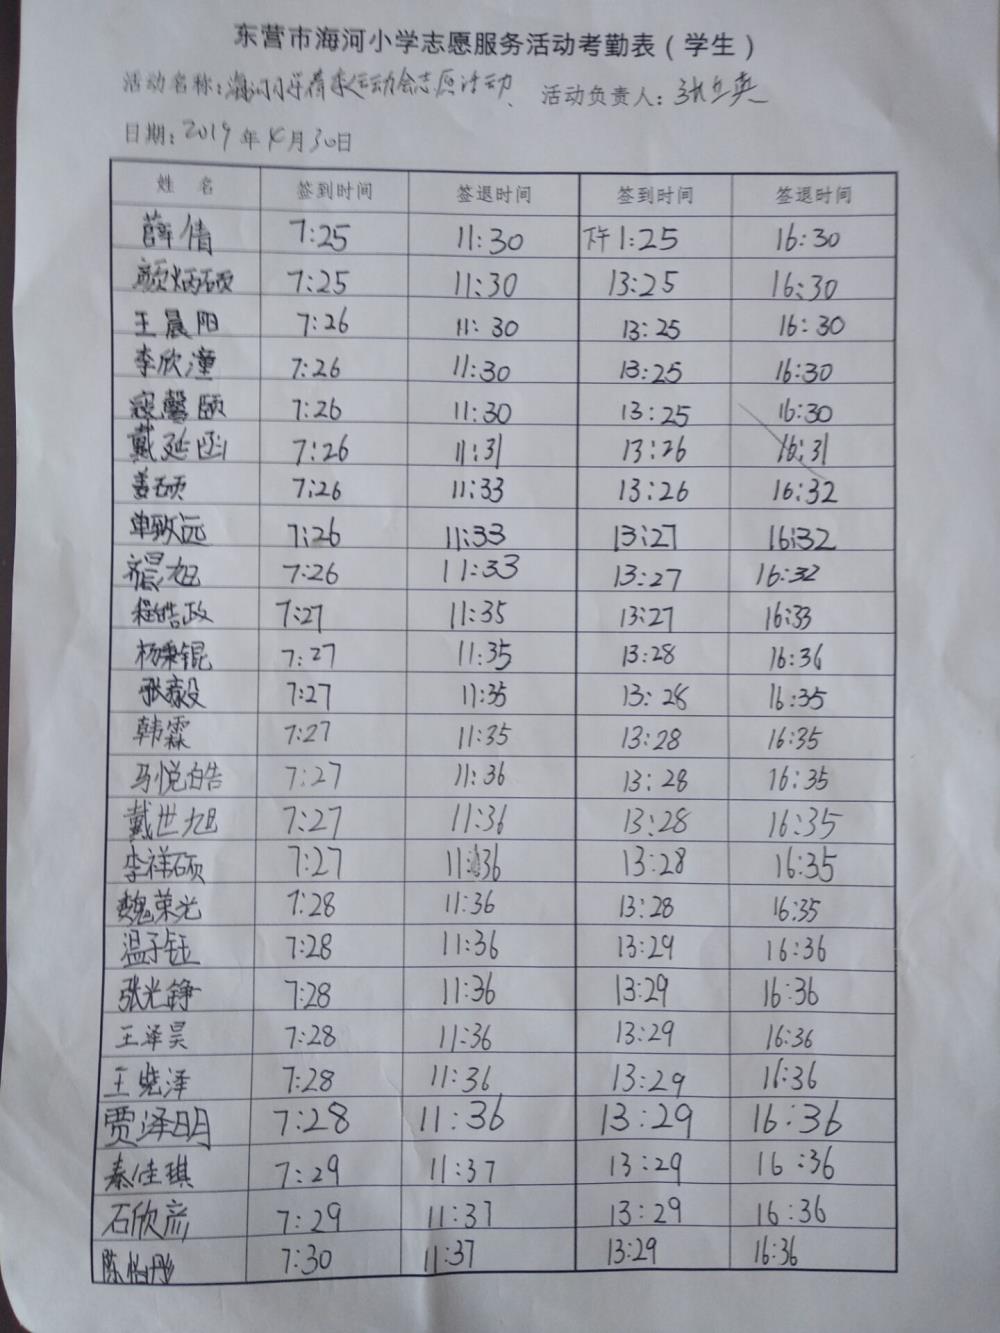 东营市海河小学志愿服务活动考勤表（学生）
活动名称：海河小学春季运动会志愿活动、 活动负责人：张立英
日期：2019年4月30日
姓 名 签到时间 签退时间 签到时间 签退时间
薛倩 7:25 11:30 下午1:25 16:30
颜炳硕 7:25 11:30 13:25 16:30
王晨阳 7:26 11:30 13:25 16:30
李欣潼 7:26 11:30 13:25 16:30
寇馨颐 7:26 11:30 13:25 16:30
戴延函 7:26 11:31 13:26 16:31
姜硕 7:26 11:33 13:26 16:32
单致远 7:26 11:33 13:27 16:32
齐晨旭 7:26 11:33 13:27 16:32
程皓政 7:27 11:35 13:27 16:33
杨秉锟 7:27 11:35 13:28 16:36
张毅 7:27 11:35 13:28 16:35
韩霖 7:27 11:35 13:28 16:35
马悦皓 7:27 11:36 13:28 16:35
戴世旭 7:27 11:36 13:28 16:35
李祥硕 7:27 11:36 13:28 16:35
魏荣光 7:28 11:36 13:28 16:35
温子钰 7:28 11:36 13:29 16:36
张光铮 7:28 11:36 13:29 16:36
王泽昊 7:28 11:36 13:29 16:36
王晓泽 7:28 11:36 13:29 16:36
贾泽明 7:28 11:36 13:29 16:36
秦佳琪 7:29 11:37 13:29 16:36
石欣彦 7:29 11:37 13:29 16:36
陈怡彤 7:30 11:37 13:29 16:36